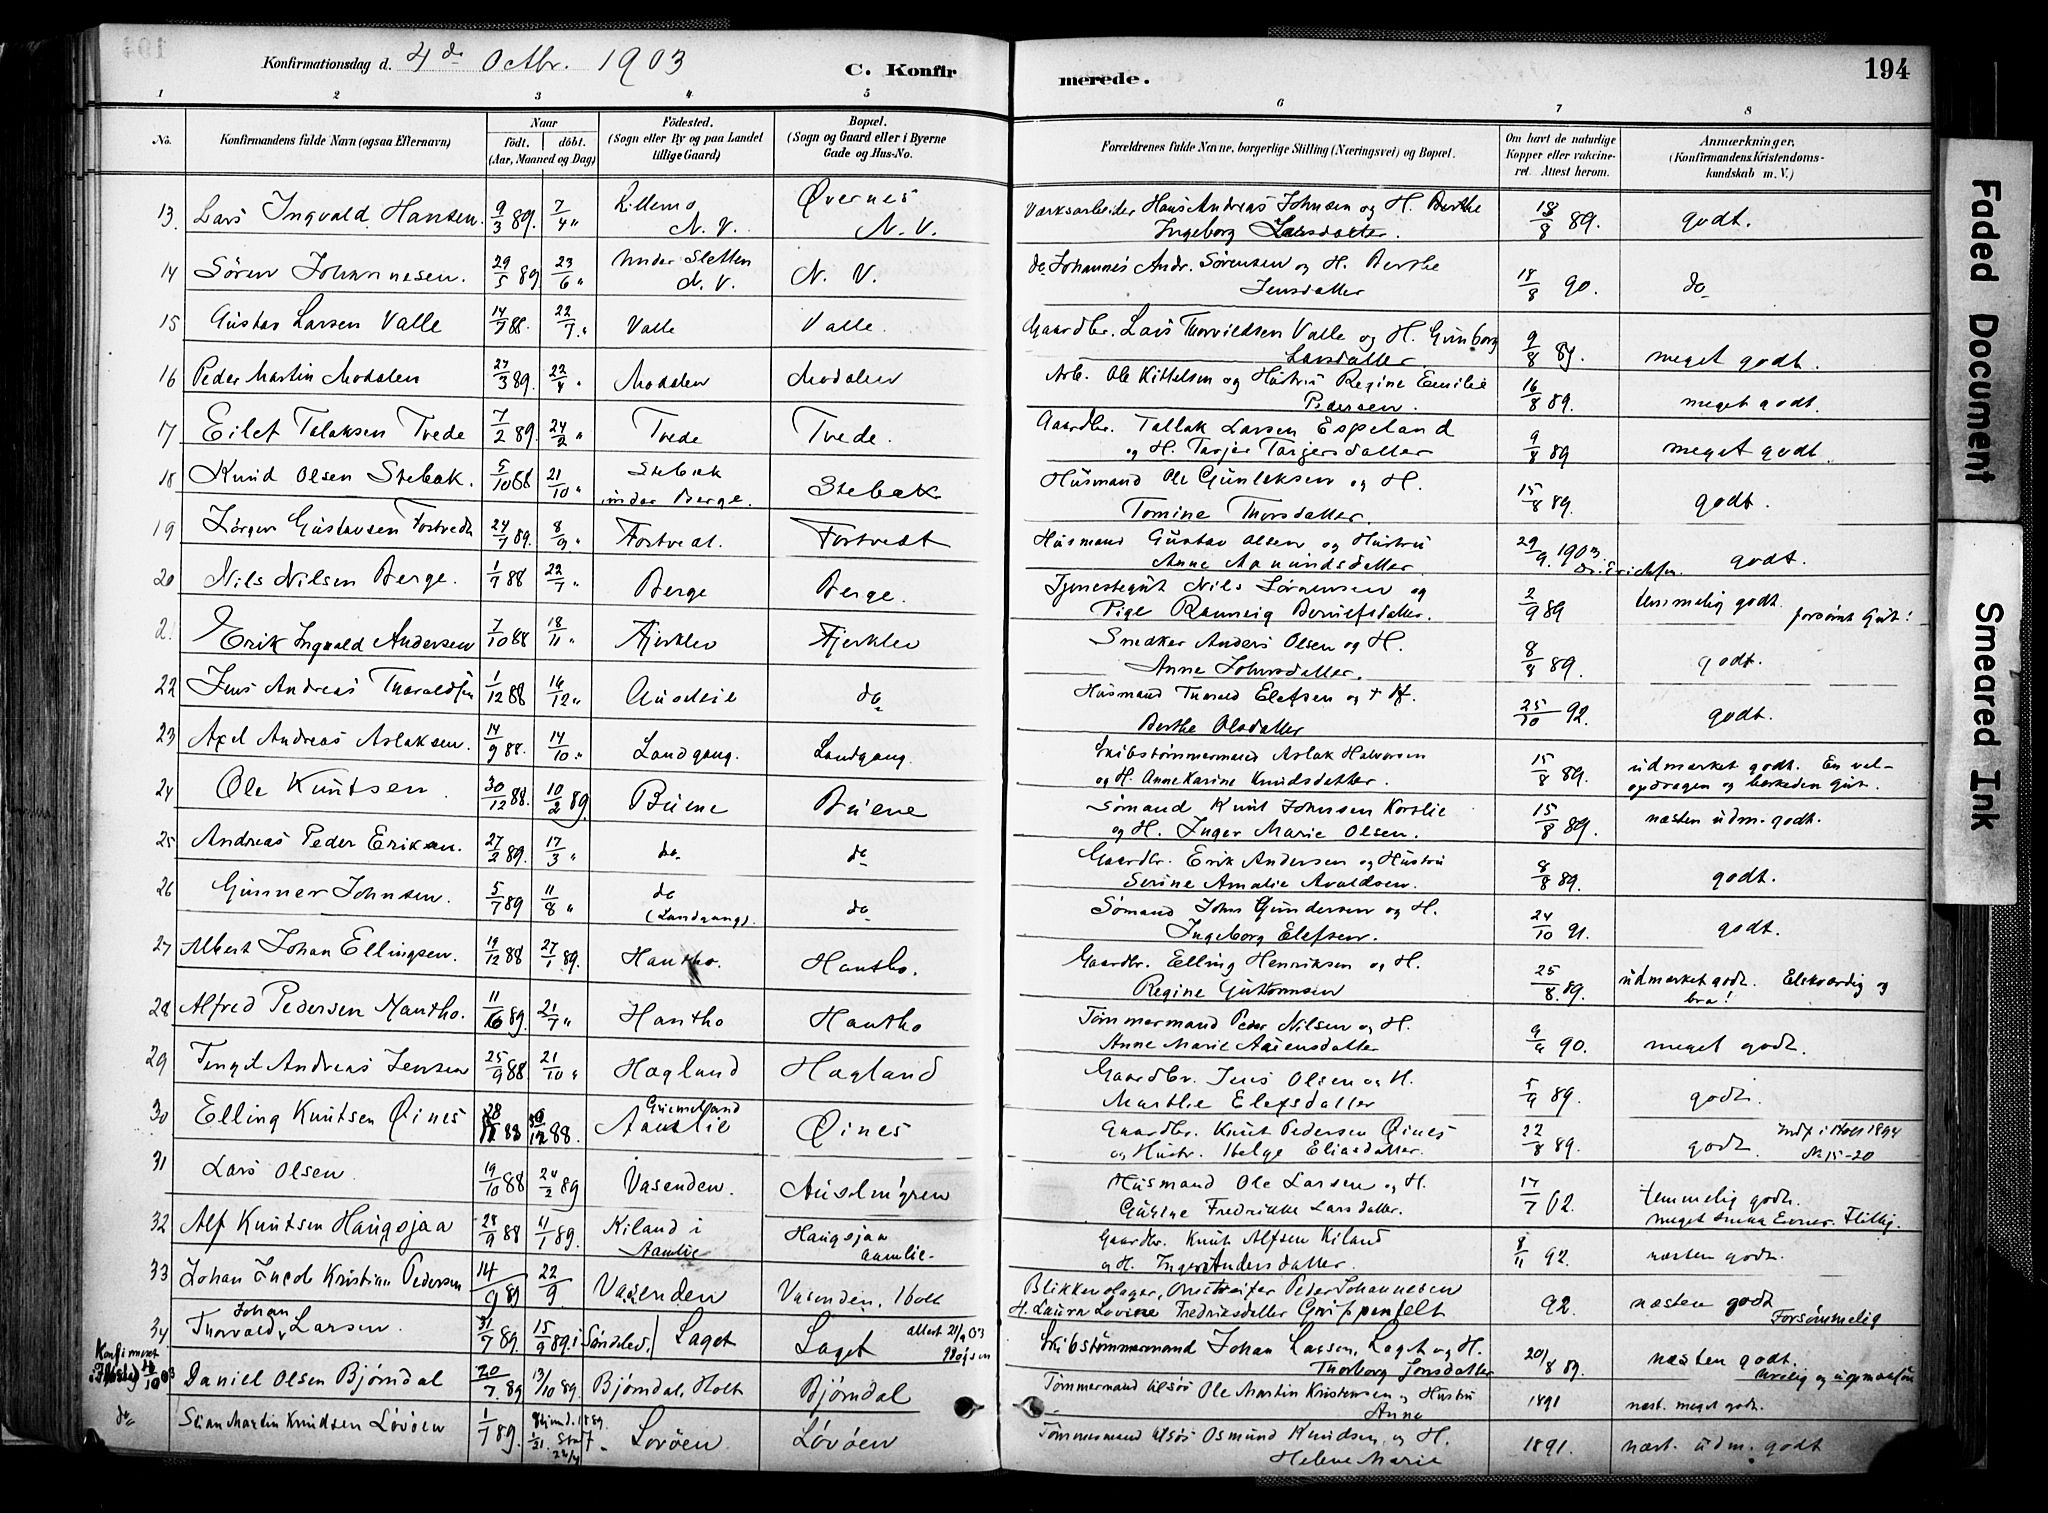 Konfirmationsdag d. 4de Octbr. 1903
C. Konfirmerede.
194
1 2 3 4 5 6 7 8
No.
Konfirmandens fulde Navn (ogsaa Efternavn)
Naar
født. døbt.
(Aar, Maaned og Dag)
Födested.
(Sogn eller By og paa Landet tillige Gaard)
Bopæl.
(Sogn og Gaard eller i Byerne Gade og Hus-No.
Forældrenes fulde Navne, borgerlige Stilling (Næringsvei) og Bopæl.
Om havt de naturlige Kopper eller vakcineret. Attest herom.
Anmærkninger.
(Konfirmandens Kristendomskundskab m. V.)
13. Lars Ingvald Hansen. 9/3 89. 7/4 " N. V. Øvernes N. V. Værksarbeider Hans Andreas Johnsen og H. Berthe Ingeborg Larsdatter. 18/8 89. godt.
14 Søren Johannesen. 29/5 89 23/6 " under Sletten N. V. N. V. do Johannes Andr. Sørensen og H. Berthe Jensdatter 18/8 90. do
15 Gustav Larsen Valle 14/7 88. 22/7 " Valle Valle. Gaardbr. Lars Thorvildsen Valle og H. Gunborg Larsdatter 9/8 89. meget godt.
16 Peder Martin Modalen 27/3 89. 22/4 " Modalen Modalen Arb. Ole Kittelsen og Hustru Regine Emilie Pedersen. 16/8 89. meget godt.
17 Eilef Talaksen Tvede 7/2 89. 24/2 " Tvede Tvede. Gaardbr. Tallak Larsen Espeland og H. Tarjer Tarjersdatter 9/8 89 meget godt.
18 Knud Olsen Stebæk. 5/10 88 21/10 " Stebæk under Berge. Stebæk Husmand Ole Gunleksen og H. Tomine Thorsdatter. 15/8 89. godt.
19 Jørgen Gustavsen Fostvedt 24/7 89. 8/9 " Fostvedt. Fostvedt Husmand Gustav Olsen og Hustru Anne Aanundsdatter. 29/9. 1903 Dr. Erichsen. godt.
20 Nils Nilsen Berge. 1/7 88 22/7 " Berge Berge. Tjenestegut Nils Jørgensen og Pige Ranneig 2/9 89 temmelig godt. forsømt Gut!
21 Erik Ingvald Andersen 7/10 88 18/11 " Fjerklev Fjerklev Snedker Anders Olsen og H. Anne Johnsdatter. 8/8 89. godt.
22 Jens Andreas Thoraldsen 1/12 88 16/12 " do Husmand Thorald Elefsen og + H. Berthe Olsdatter 25/10 92. godt.
23 Axel Andreas Aslaksen. 14/9 88. 14/10 " Landgang. Landgang. Skibstømmermand Aslak Halvorsen og H. Anne Karine Knudsdatter. 15/8 89. udmærket godt. En velopdragen og beskeden Gut.
24 Ole Knutsen. 30/12 88. 10/2 89. Buene Buene Sømand Knut Johnsen Korslie og H. Inger Marie Olsen. 15/8 89. næsten udm. godt.
25 Andreas Peder Eriksen. 27/2 89. 17/3 " do. do Gaardbr. Erik Andersen og Hustru Serine Amalie Avaldsen. 8/8 89. godt.
26 Gunner Johnsen. 5/7 89 11/8 " do (Landgang). do Sømand John Gundersen og H. Ingeborg Elefsen. 24/10 91. godt.
27 Albert Johan Ellingsen. 19/12 88 27/1 89. Hantho. Hantho. Gaardbr. Elling Henriksen og H. Regine Guttormsen 25/8. 89. udmærket godt. Elskværdig og bra!
28 Alfred Pedersen Hantho. 11/6 89. 21/7 " Hantho Hantho Tømmermand Peder Nilsen og H. Anne Marie Aasensdatter 9/9 90. meget godt.
29 Tengel Andreas Jensen 25/9 88 21/10 " Hagland Hagland Gaardbr. Jens Olsen og H. Marthe Elefsdatter 5/9 89. godt.
30 Elling Knutsen Øines 28/11 88 30/12 88. Aamlie Øines Gaardbr. Knut Pedersen Øines og Hustr. Helge Eliasdatter. 22/8 89. godt. Indf. i Holt 1894 No 15-20
31 Lars Olsen. 19/10 88 24/2 89 Vasenden. Husmand Ole Larsen og H. Gurine Fredrikke Larsdatter. 17/7 02. temmelig godt. meget smaa Evner. Flittig.
32 Alf Knutsen Haugsjaa 28/9 88 11/1 89. Kiland i Aamlie Haugsjaa Aamlie. Gaardbr. Knut Alfsen Kiland og H. Inger Andersdatter. 8/11 92. næsten godt.
33 Johan Jacob Kristian Pedersen 14/9 89 22/9 Vasenden Vasenden. Holt Blikkenslager, Peder Johannesen H. Laura Lovine Fredriksdatter Griffenfelt 92. næsten godt Forsømmelig
34 Thorvald Johan Larsen. 31/7 89. 15/9 89. i Søndelev. Laget Laget attest 21/9 03 Skibstømmermand Johan Larsen, Laget og H. Thorborg Jonsdatter 20/8 89. næsten godt.
Konfirmeret i Flosta 11/10 03 Daniel Olsen Bjørndal 20/7. 89 13/10 89. Bjørndal. Holt Bjørndal Tømmermand tilsøs Ole Martin Kristensen og Hustru Anne 1891 næst. meget godt.
do Stian Martin Knudsen Løvøen 1/7 89. Løvøen Løvøen Tømmermand tilsøs Osmund Knudsen og H. Helene Marie 1891. næst. udm. godt
Faded Document
Smeared Ink